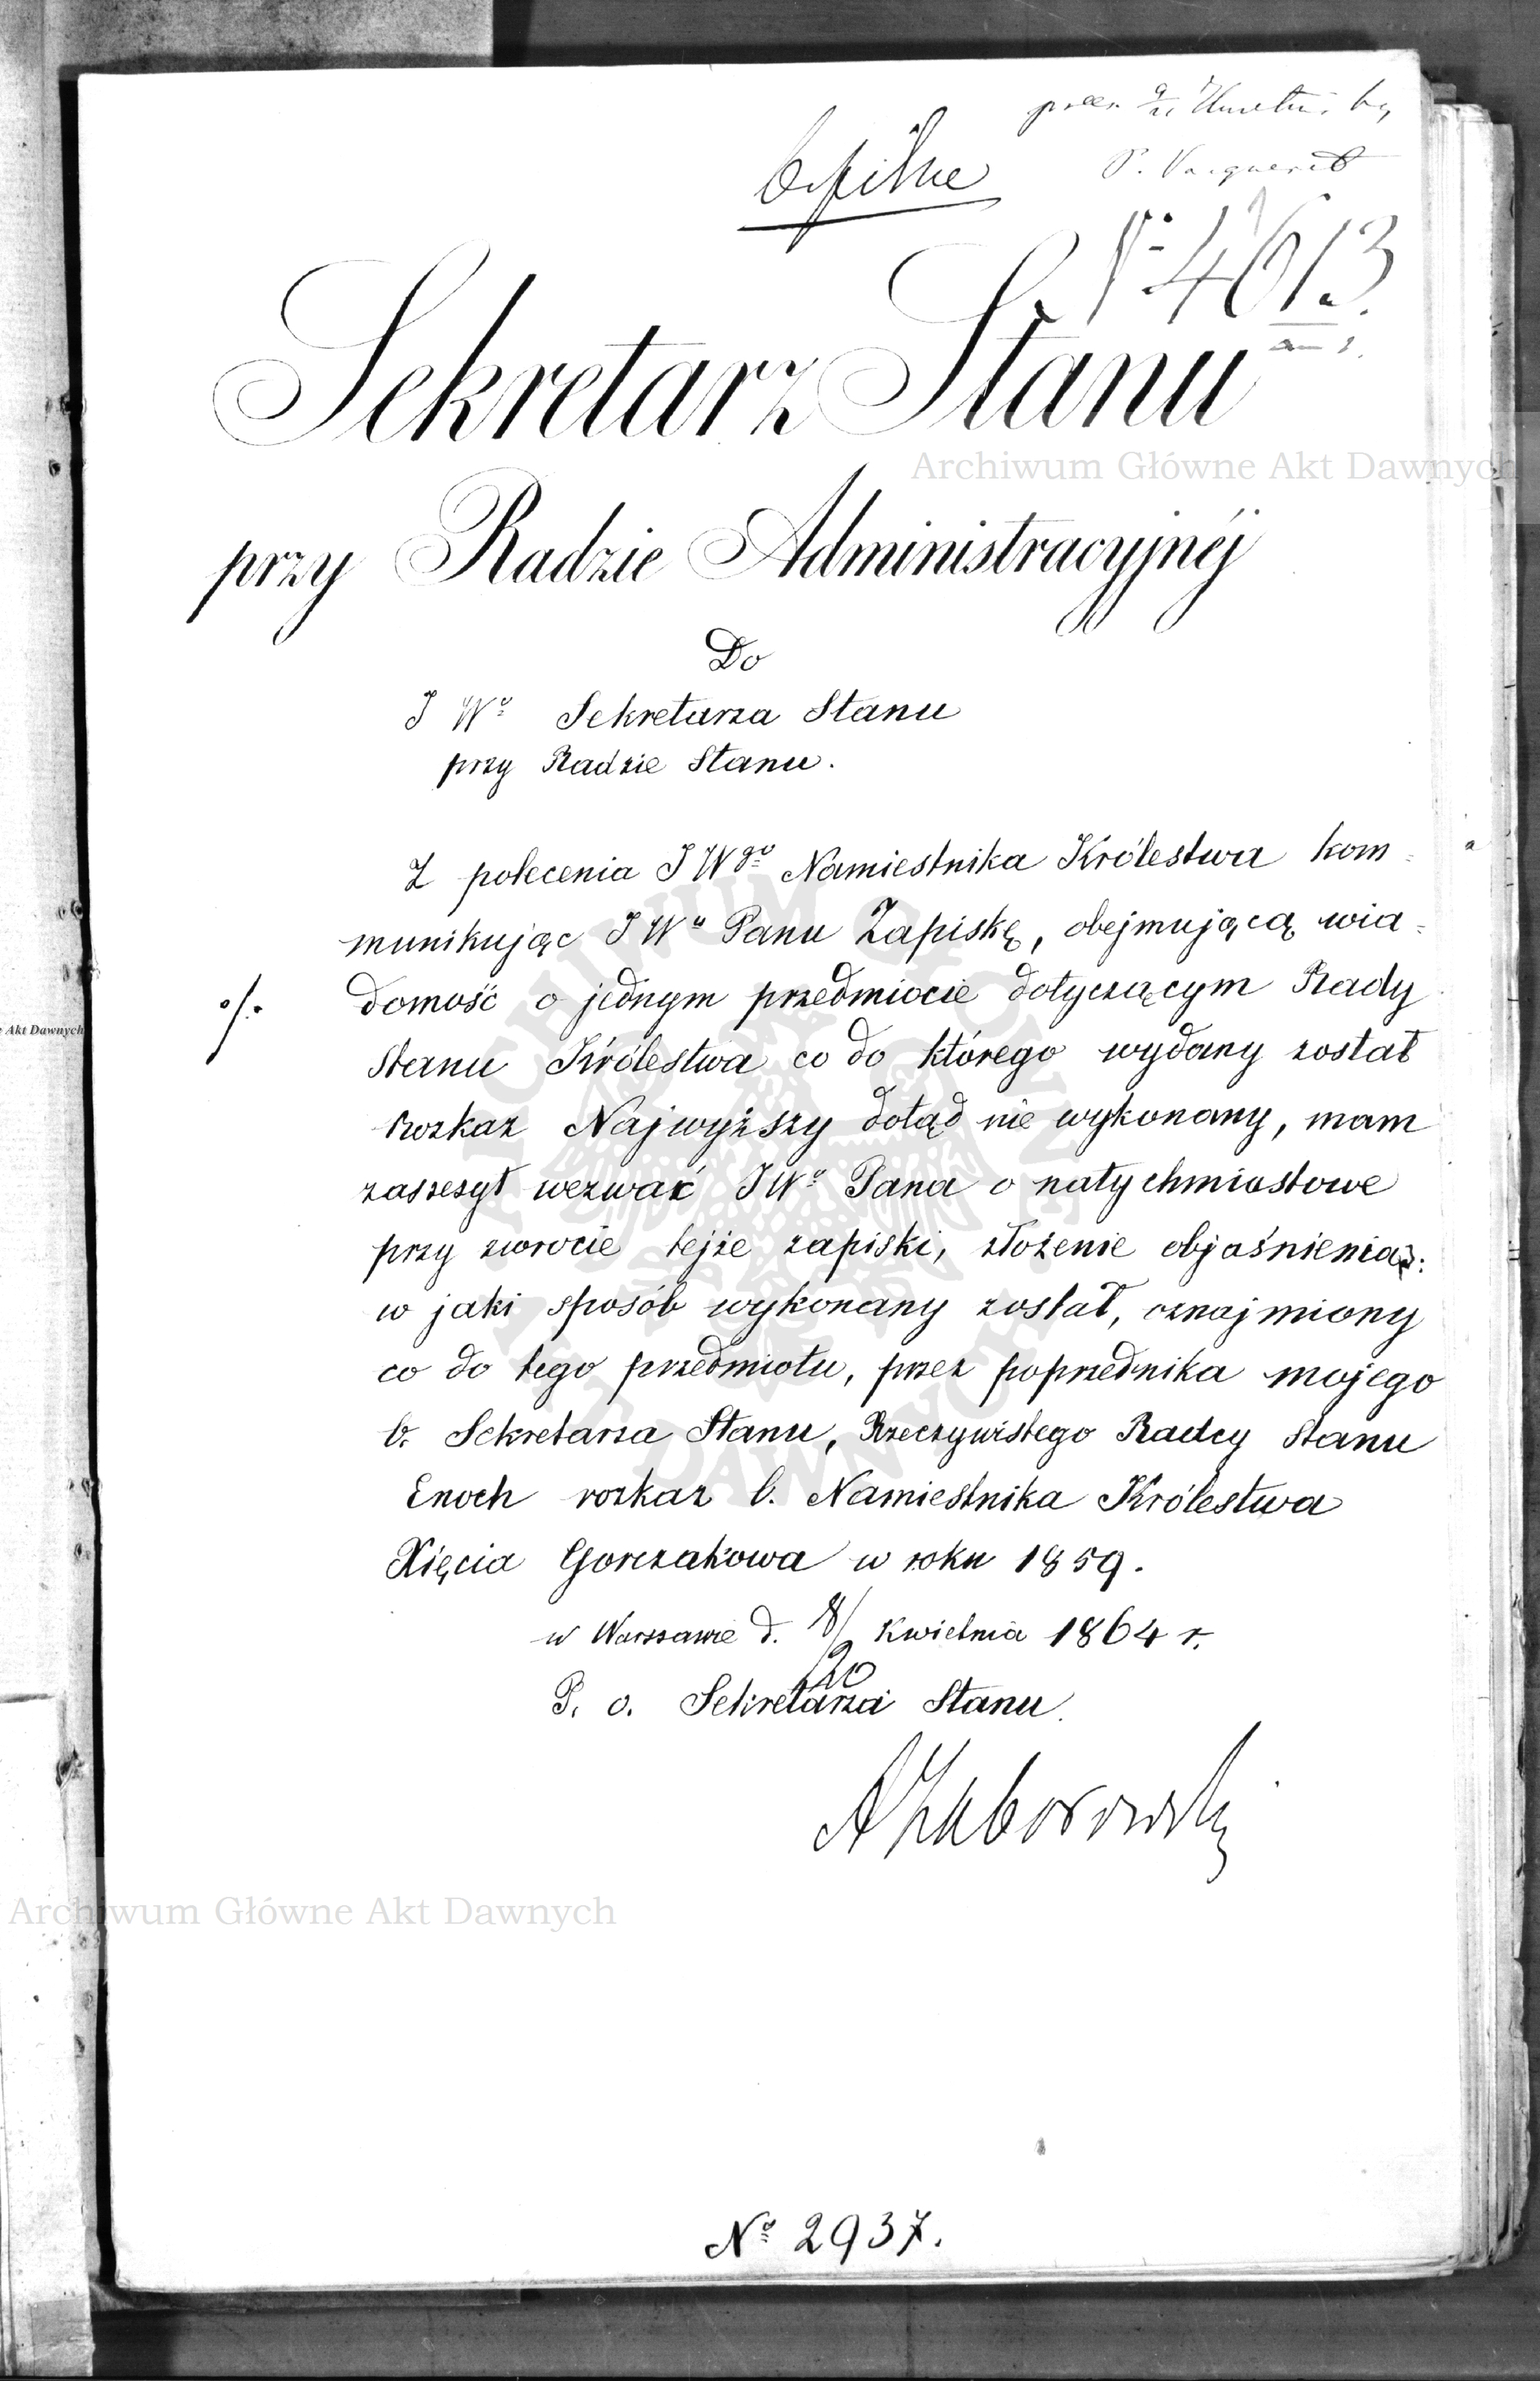 b. pilne
№ 4613.
Sekretarz Stanu
Archiwum Główne Akt Dawnych
przy Radzie Administracyjnéj
Do
J Wº Sekretarza Stanu
przy Radzie Stanu.
Z polecenia J Wgº Namiestnika Królestwa kom=
munikując J Wu Panu Zapiskę, obejmującą wia=
domość o jednym przedmiocie dotyczącym Rady
Stanu Królestwa co do którego wydany został
rozkaz Najwyższy dotąd nie wykonany, mam
zaszczyt wezwać JWº Pana o natychmiastowe
przy zwrocie tejże zapiski, złożenie objaśnienia:
w jaki sposób wykonany został, oznajmiony
co do tego przedmiotu, przez poprzednika mojego
b. Sekretarza Stanu, Rzeczywistego Radcy Stanu
Enoch rozkaz b. Namiestnika Królestwa
Xięcia Gorczakowa w roku 1859.
w Warszawie d. 8/20 Kwietnia 1864 r.
P. o. Sekretarza Stanu.
AZaborowski
Archiwum Główne Akt Dawnych
Nº 2937.